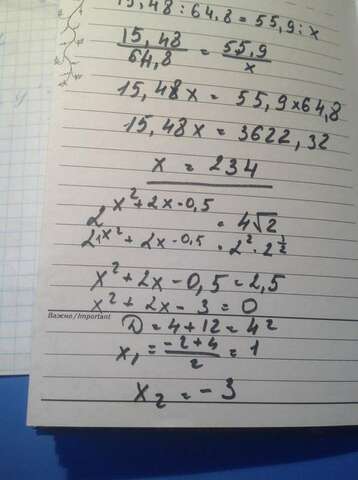 15,48 : 64,8 = 55,9 : x
15,48 / 64,8 = 55,9 / x
15,48x = 55,9×64,8
15,48x = 3622,32
x = 234
2^x²+2x-0,5 = 4√2
2^x²+2x-0,5 = 2² · 2^1/2
x²+2x-0,5 = 2,5
x²+2x-3=0
Важно/Important
D = 4+12 = 4²
x₁ = -2+4 / 2 = 1
x₂ = -3